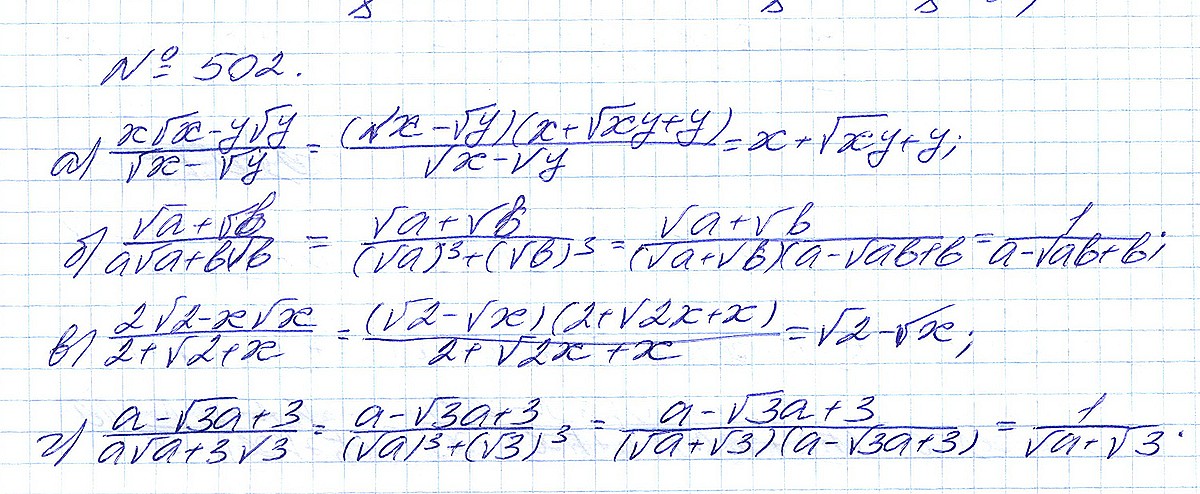 № 502.
а) (x√x - y√y)/(√x - √y) = ((√x - √y)(x + √xy + y))/(√x - √y) = x + √xy + y;
б) (√a + √b)/(a√a + b√b) = (√a + √b)/((√a)³ + (√b)³) = (√a + √b)/((√a + √b)(a - √ab + b) = 1/(a - √ab + b);
в) (2√2 - x√x)/(2 + √2 + x) = ((√2 - √x)(2 + √2x + x))/(2 + √2x + x) = √2 - √x;
г) (a - √3a + 3)/(a√a + 3√3) = (a - √3a + 3)/((√a)³ + (√3)³) = (a - √3a + 3)/((√a + √3)(a - √3a + 3)) = 1/(√a + √3).